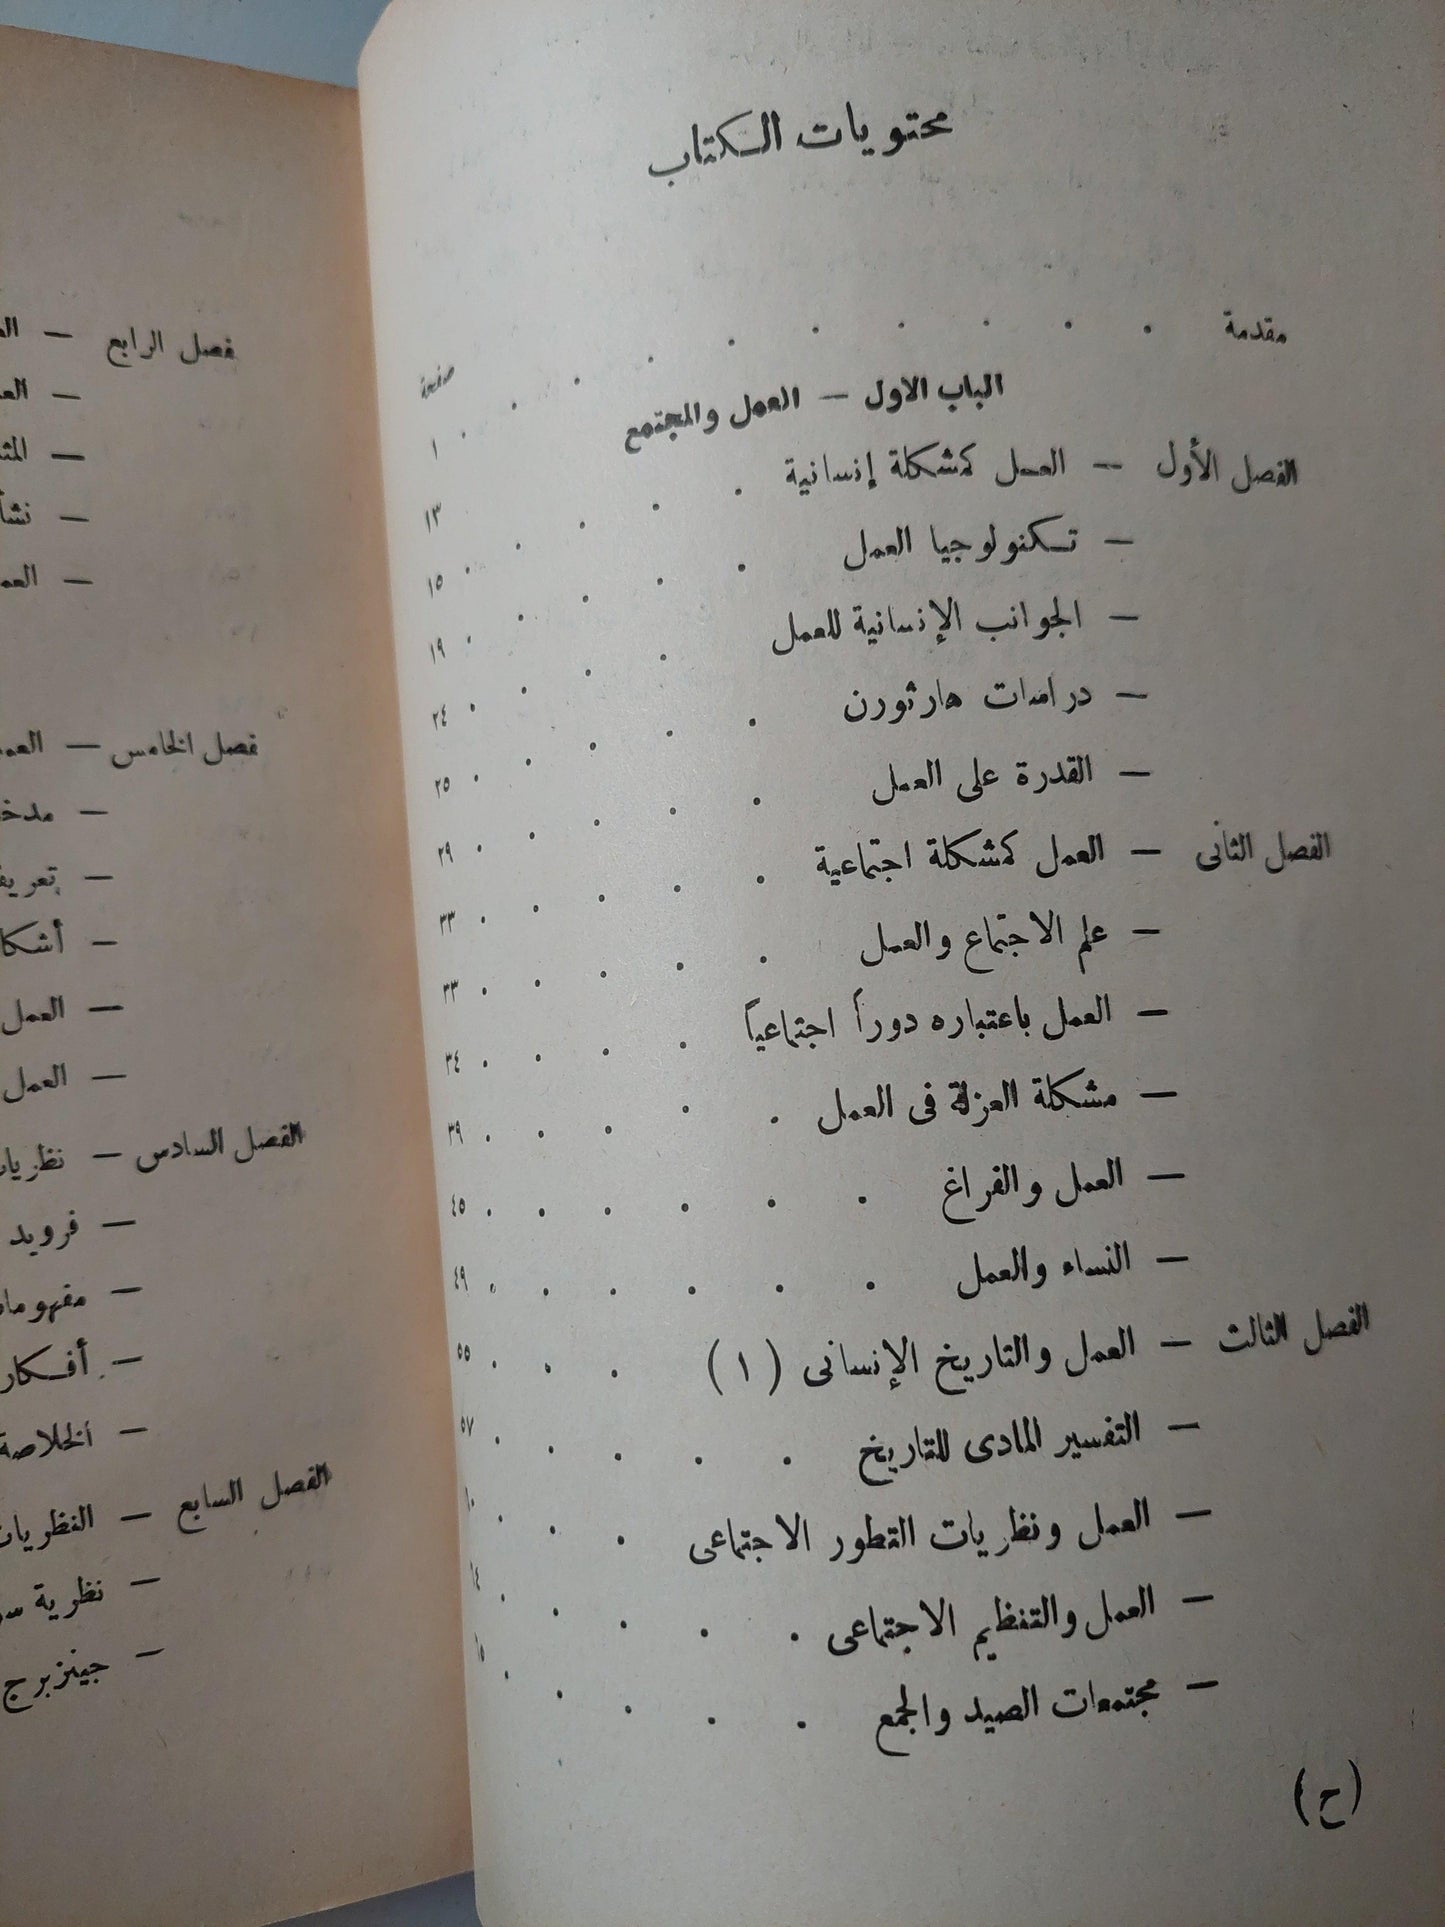 محتويات الكتاب
صفحة
مقدمة . . . . . . . . . . ١
الباب الاول — العمل والمجتمع
الفصل الأول — العمل كمشكلة إنسانية . . . . ١٣
— تكنولوجيا العمل . . . . ١٥
— الجوانب الإنسانية للعمل . . . . ١٩
— دراسات هارثورن . . . . ٢٤
— القدرة على العمل . . . . . ٢٥
الفصل الثانى — العمل كمشكلة اجتماعية . . . . . ٢٩
— علم الاجتماع والعمل . . . . . ٣٣
— العمل باعتباره دوراً اجتماعياً . . . . ٣٣
— مشكلة العزلة فى العمل . . . . . ٣٤
— العمل والفراغ . . . . . . ٣٩
— النساء والعمل . . . . . . ٤٥
الفصل الثالث — العمل والتاريخ الإنسانى ( ١ ) . . . ٤٩
— التفسير المادى للتاريخ . . . . . ٥٥
— العمل ونظريات التطور الاجتماعى . . . ٥٧
— العمل والتنظيم الاجتماعى . . . . .
— مجتمعات الصيد والجمع . . . . .
(ح)
فصل الرابع —
—
—
—
—
فصل الخامس —
—
—
—
— العمل
— العمل
الفصل السادس —
— فرويد
—
—
— الخلاصة
الفصل السابع —
— نظرية
— جينزبرج